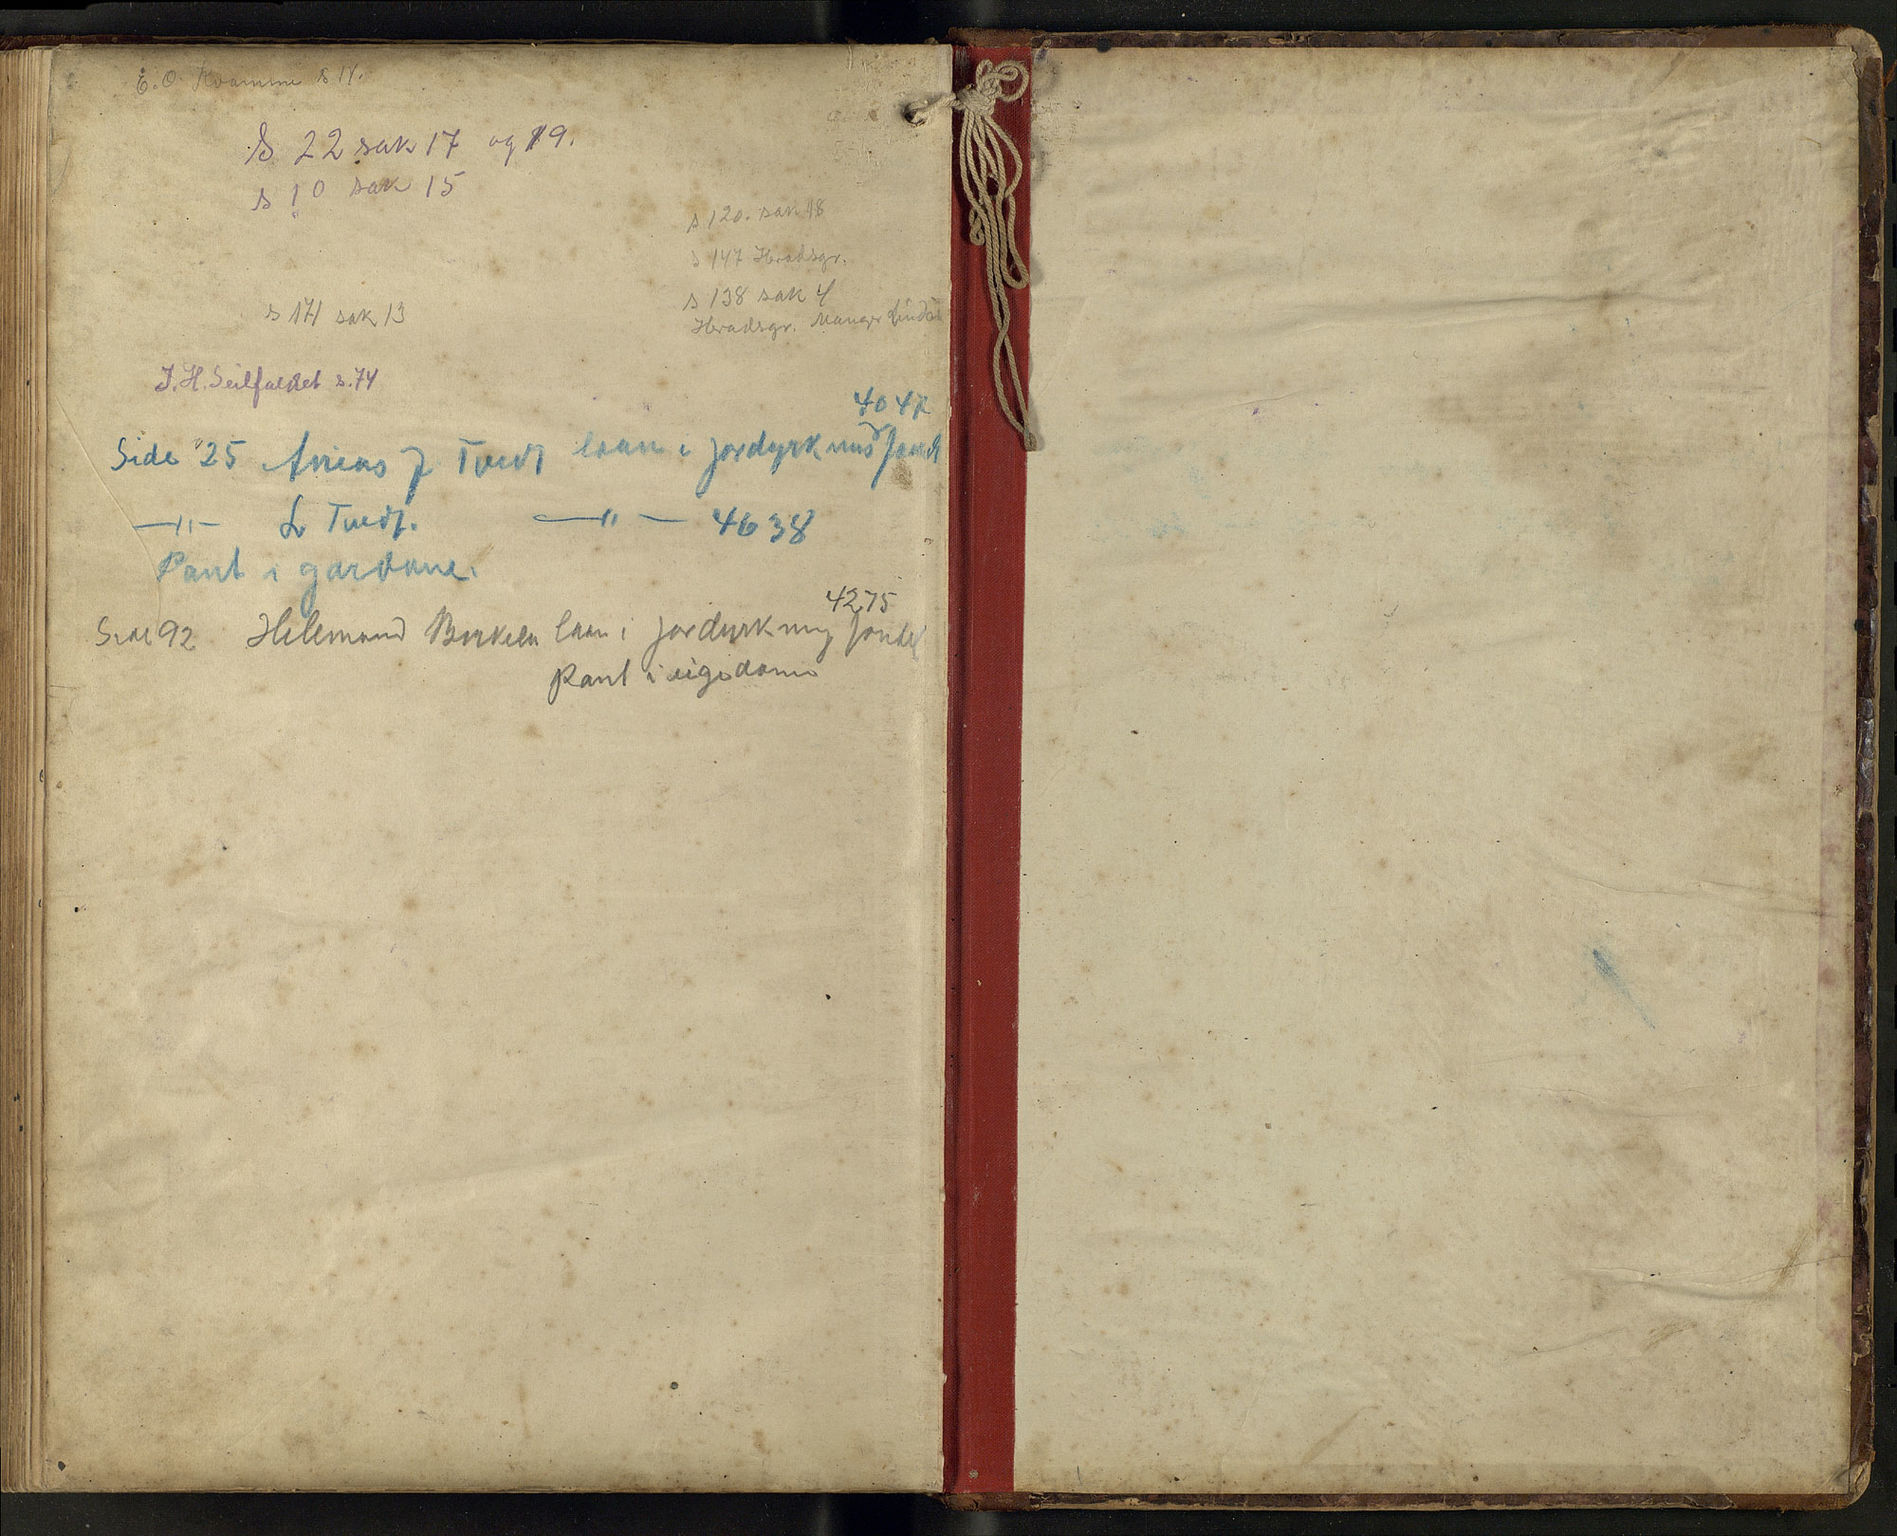 E. O. Kvamme s 14.
S 22 sak 17 og 19.
s 10 sak 15
s 120. sak 18
s 147 Hradsgr.
s 138 sak 4
Hradsgr. Manger Lindås
s 171 sak 13
J. H. Seilfaldet s. 74
4042
Side 25 J Tvedt laan i jordyrkningsfond
—"— L Tvedt. —"— 4638
Pant i gardane.
4275
Side 92 Hillemand Birkeln laan i jordyrkning fondet
Pant i eigedomo